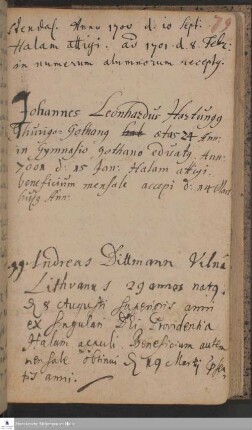 Anno 1700 d. 10 Sept.
Halam attigi. ad 1701 d. 8. Febr:
in numerum alumnorum
79
Johannes Leonhardus Hartung
Thuringo-Gothang ætas 24 Ann:
in Gymnasio gothano Ann:
d: 15 Jan: Halam attigi.
beneficium mensale accepi d: 14 Mart
Ann:
Andreas Dittmann Vilnâ
Lithvanus 29 annos natq.
8 Augusti Superioris anni
ex Singulari Dei Providentia
Halam appuli. Beneficium autem
mensale obtinui 19 Martij
anni.